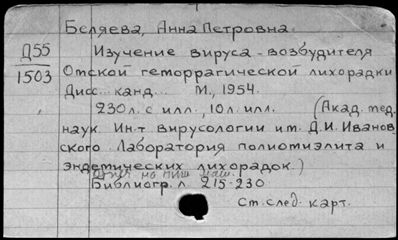 Беляева, Анна Петровна.
Д55
1503
Изучение вируса - возбудителя
Омской геморрагической лихорадки
Дисс. канд. М., 1954.
230л. с илл., 10л. илл. (Акад. мед.
наук. Ин-т вирусологии им. Д.И. Иванов-
ского. Лаборатория полиомиэлита и
эндемических лихорадок.)
Библиогр. л. 215-230
См. след. карт.